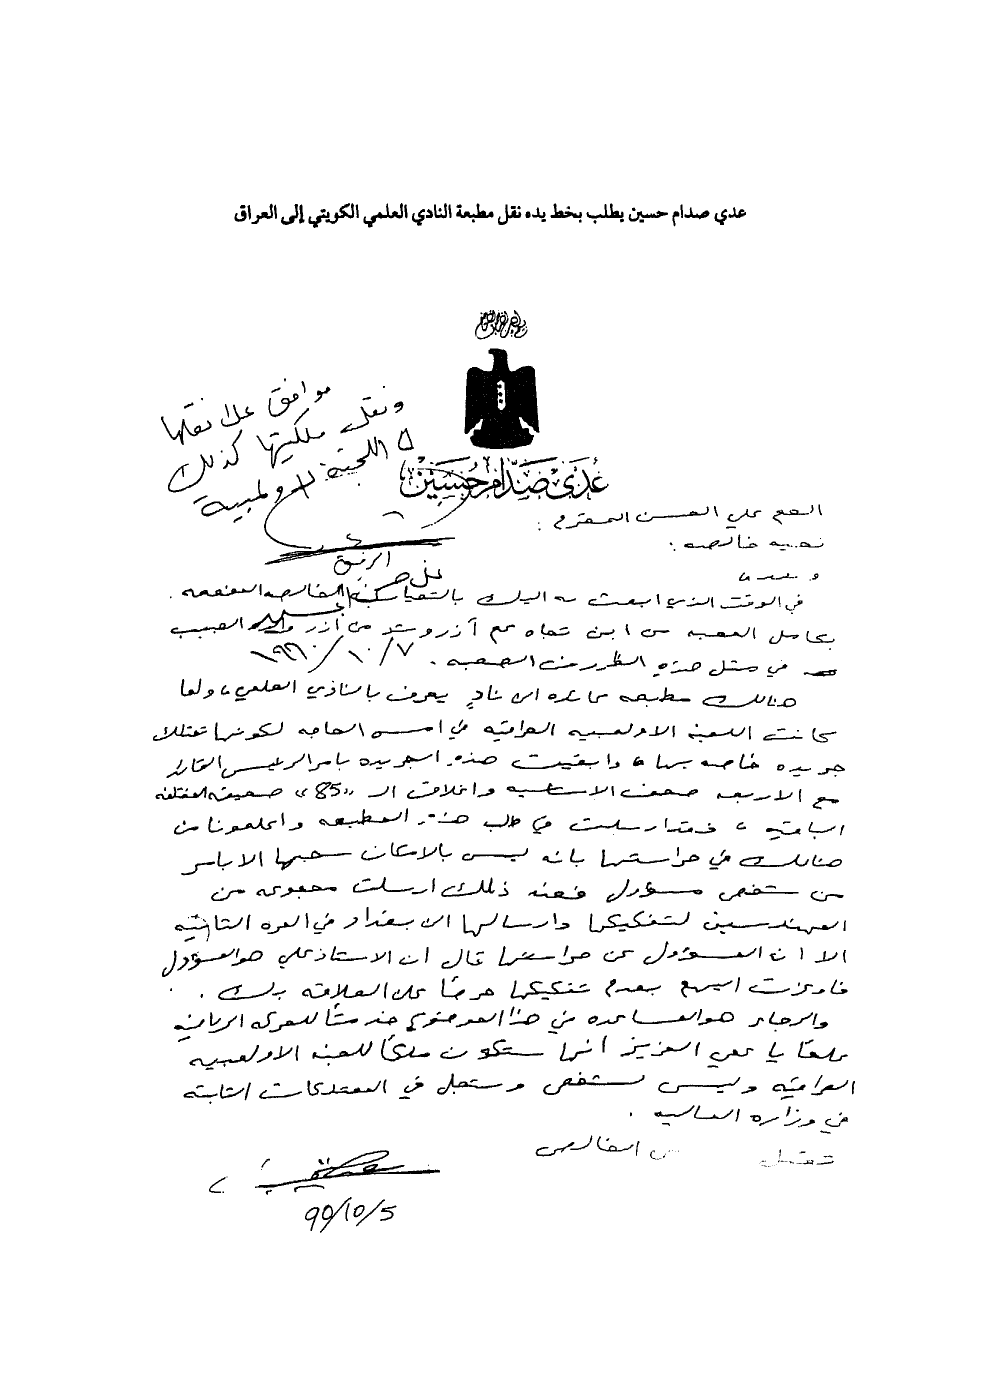 عدي صدام حسين يطلب بخط يده نقل مطبعة النادي العلمي الكويتي إلى العراق
بسم الله الرحمن الرحيم
عُدَي صَدّام حُسَين
موافق على نقلها
ونقل ملكيتها كذلك
اللجنة الاولمبية
الرفيق
علي حسن المجيد
١٩٩٠/١٠/٧
العم علي الحسن المحترم :
تحيه خالصه :
وبعد ،
في الوقت الذي ابعث به اليك بالتحيات الخالصه المفعمه
بكامل المحبه من ابن تجاه عم آزر الحبيب
في مثل هذه الظروف الصعبه .
هنالك مطبعه عائده الى نادٍ يعرف بالنادي العلمي ، ولما
كانت اللجنه الاولمبيه العراقيه في امس الحاجه لكونها تمتلك
جريده خاصه بها ، وابقيت هذه الجريده بامر الرئيس القائد
مع الاربعه صحف الاساسيه واغلاق الـ «85» صحيفه المختلفه
الباقيه ، فقد ارسلت في طلب هذه المطبعه واعلمونا من
هنالك في حراستها بانه ليس بالامكان سحبها الا بامر
من شخص مسؤول فعند ذلك ارسلت مجموعه من
المهندسين لتفكيكها وارسالها الى بغداد في المره الثانيه
الا ان المسؤول عن حراستها قال ان الاستاذ علي هو المسؤول
فاوعزت اليهم بعدم تفكيكها حرصاً على العلاقه بك .
والرجاء هو المساعده في هذا الموضوع خدمتاً للحركه الرياضيه
علماً يا عمي العزيز انها ستكون ملكاً للجنه الاولمبيه
العراقيه وليس لشخص وستجل في الممتلكات الثابته
في وزاره الماليه .
تقبل من الخالص
90/10/5